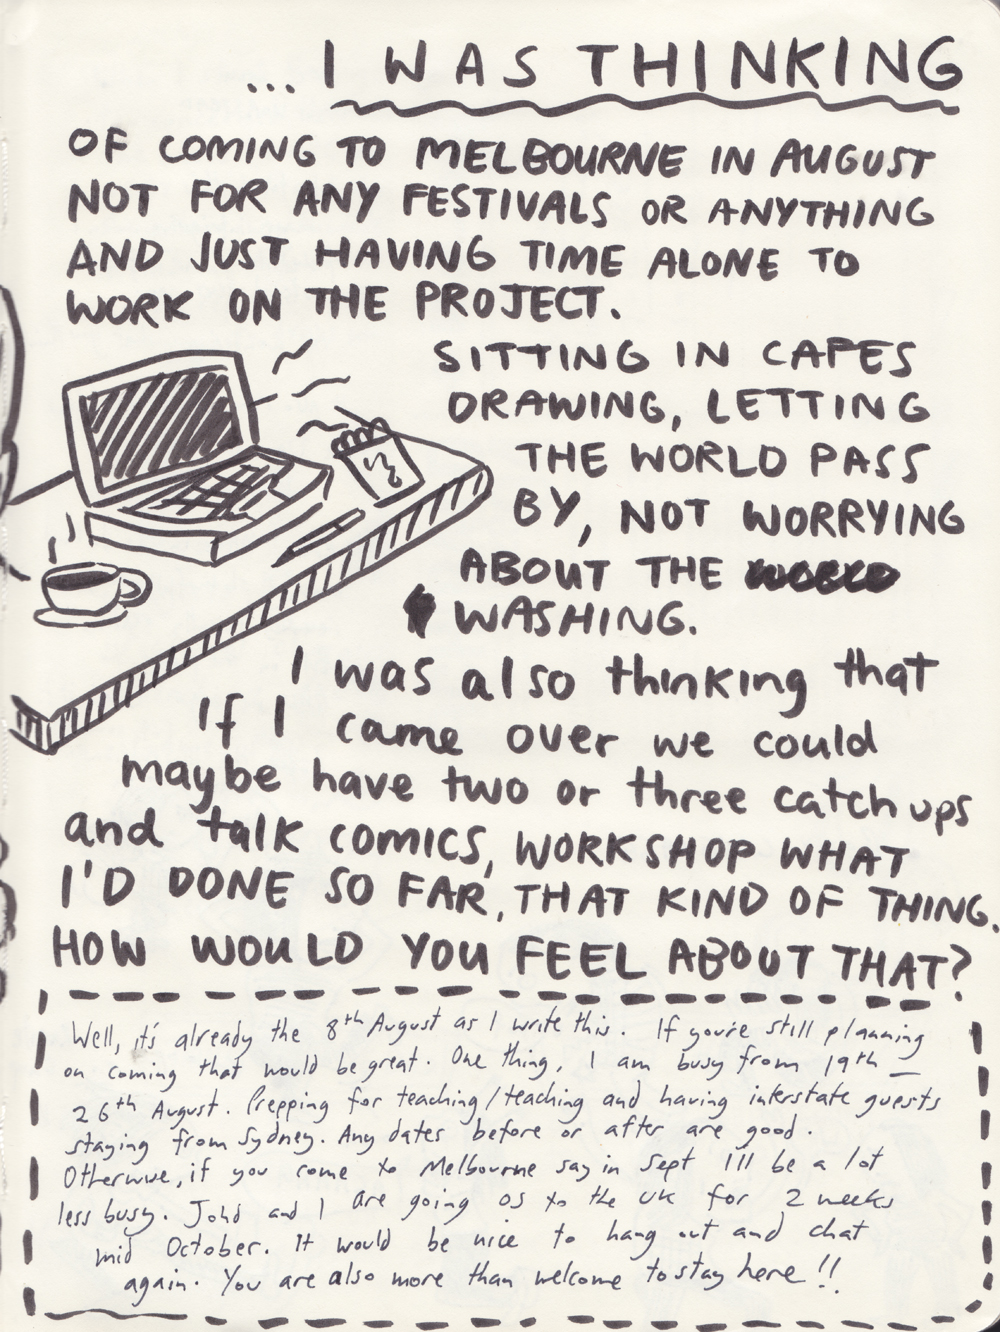 ...I WAS THINKING
OF COMING TO MELBOURNE IN AUGUST
NOT FOR ANY FESTIVALS OR ANYTHING
AND JUST HAVING TIME ALONE TO
WORK ON THE PROJECT.
SITTING IN CAFES
DRAWING, LETTING
THE WORLD PASS
BY, NOT WORRYING
ABOUT THE
WASHING.
I was also thinking that
If I came over we could
maybe have two or three catch ups
and talk COMICS, WORKSHOP WHAT
I'D DONE SO FAR, THAT KIND OF THING.
HOW WOULD YOU FEEL ABOUT THAT?
Well, it's already the 8th August as I write this. If you're still planning
on coming that would be great. One thing, I am busy from 19th —
26th August. Prepping for teaching/teaching and having interstate guests
staying from Sydney. Any dates before or after are good.
Otherwise, if you come to Melbourne say in Sept I'll be a lot
less busy. and I are going os to the UK for 2 weeks
mid October. It would be nice to hang out and chat
again. You are also more than welcome to stay here!!